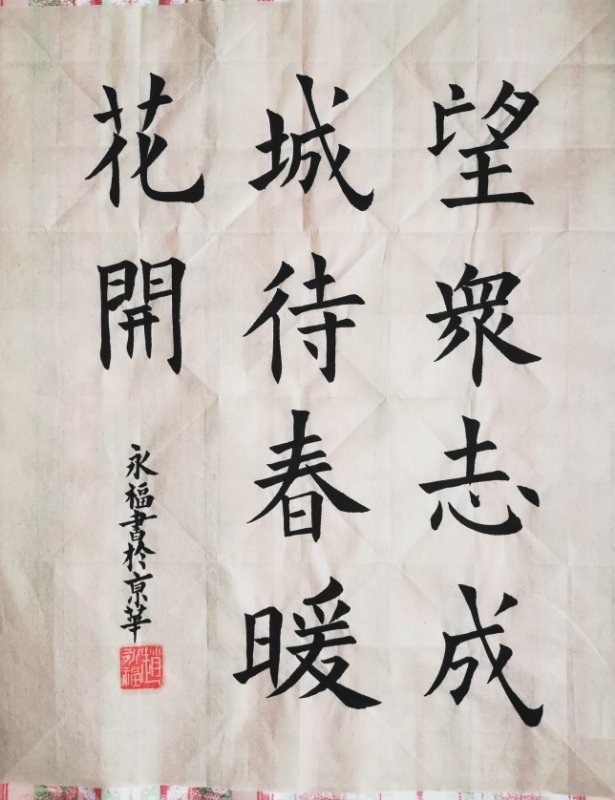 望衆志成
城待春暖
花開
永福書於京華
趙永福